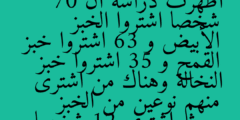 اظهرت دراسة ان 70
شخصا اشتروا الخبز
الأبيض و 63 اشتروا خبز
القمح و 35 اشتروا خبز
النخالة وهناك من اشترى
منهم نوعين من الخبز